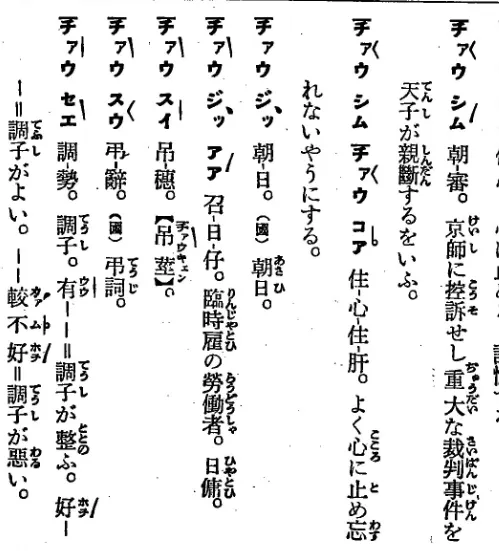 チァウ シム 朝-審。京師に控訴せし重大な裁判事件を
天子が親斷するをいふ。
チァウ シム チァウ コア 住-心-住-肝。よく心に止め忘
れないやうにする。
チァウ ジッ 朝-日。(國) 朝日。
チァウ ジッ アア 召-日-仔。臨時雇の勞働者。日傭。
チァウ スイ 吊穗。【吊莖】。
チァウ スウ 弔-辭。(國) 弔詞。
チァウ セエ 調-勢。調子。有――=調子が整ふ。好―
―=調子がよい。――較不好=調子が惡い。